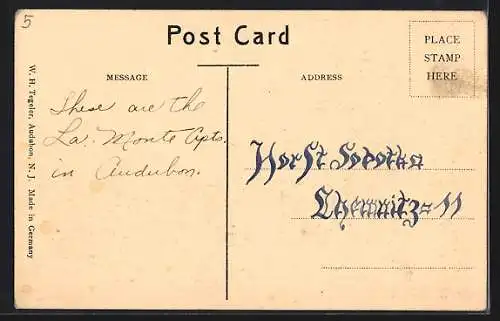 5
Post Card
PLACE
STAMP
HERE
MESSAGE
ADDRESS
W. H. Tegeler, Audubon, N. J. Made in Germany
These are the
La. Monte Apts.
in Audubon.
Horst Sobotka
Chemnitz=11